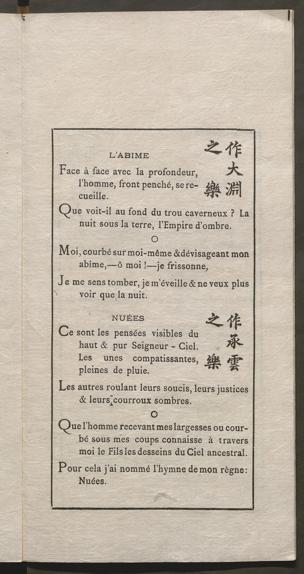 作大淵
之樂
L'ABIME
Face à face avec la profondeur,
l'homme, front penché, se re-
cueille.
Que voit-il au fond du trou caverneux ? La
nuit sous la terre, l'Empire d'ombre.
○
Moi, courbé sur moi-même & dévisageant mon
abîme,—ô moi !—je frissonne,
Je me sens tomber, je m'éveille & ne veux plus
voir que la nuit.
作承雲
之樂
NUÉES
Ce sont les pensées visibles du
haut & pur Seigneur - Ciel.
Les unes compatissantes,
pleines de pluie.
Les autres roulant leurs soucis, leurs justices
& leurs courroux sombres.
○
Que l'homme recevant mes largesses ou cour-
bé sous mes coups connaisse à travers
moi le Fils les desseins du Ciel ancestral.
Pour cela j'ai nommé l'hymne de mon règne:
Nuées.